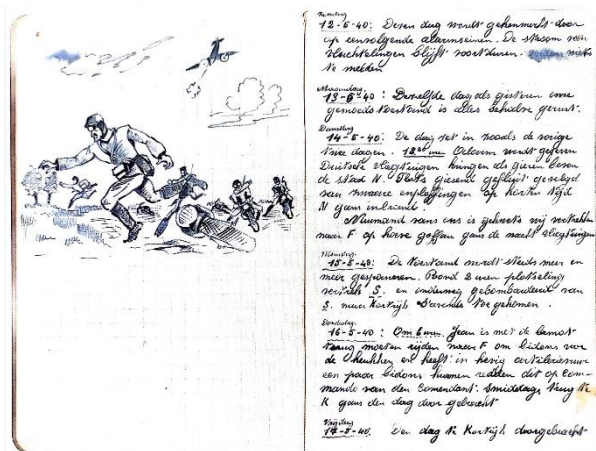 Zondag
12-5-40: Dezen dag wordt gekenmerkt door
op eenvolgende alarmseinen. De stroom van
vluchtelingen blijft voortduren. verders niets
te melden
Maandag
13-5-40: Dezelfde dag als gisteren onze
gemoedstoestand is alles behalve gerust.
Dinsdag
14-5-40: De dag zet in zooals de vorige
twee dagen. Alarm wordt gegeven
Duitsche vliegtuigen hangen als gieren boven
de stad N. gefluit gevolgd
van zware ontploffingen op korten tijd
N gans in brand.
Niemand van ons is gekwetst wij vertrekken
naar F op hoeve gans de nacht vliegtuigen
Woensdag
15-5-40: De toestand wordt steeds meer en
meer gespannen. Rond 2 uren plotseling
vertrek S. en onderweg gebombardeerd van
S. naar Kortrijk S'avonds toegekomen.
Donderdag
16-5-40: Om 6 uren Jean is met de kamot
terug moeten rijden naar F om bidons voor
de keukken en heeft in hevig artillerievuur
een paar bidons kunnen redden dit op Com-
mando van den Comendant. Smiddags terug te
K gans den dag door gebracht
Vrijdag
17-5-40. Den dag te Kortrijk doorgebracht